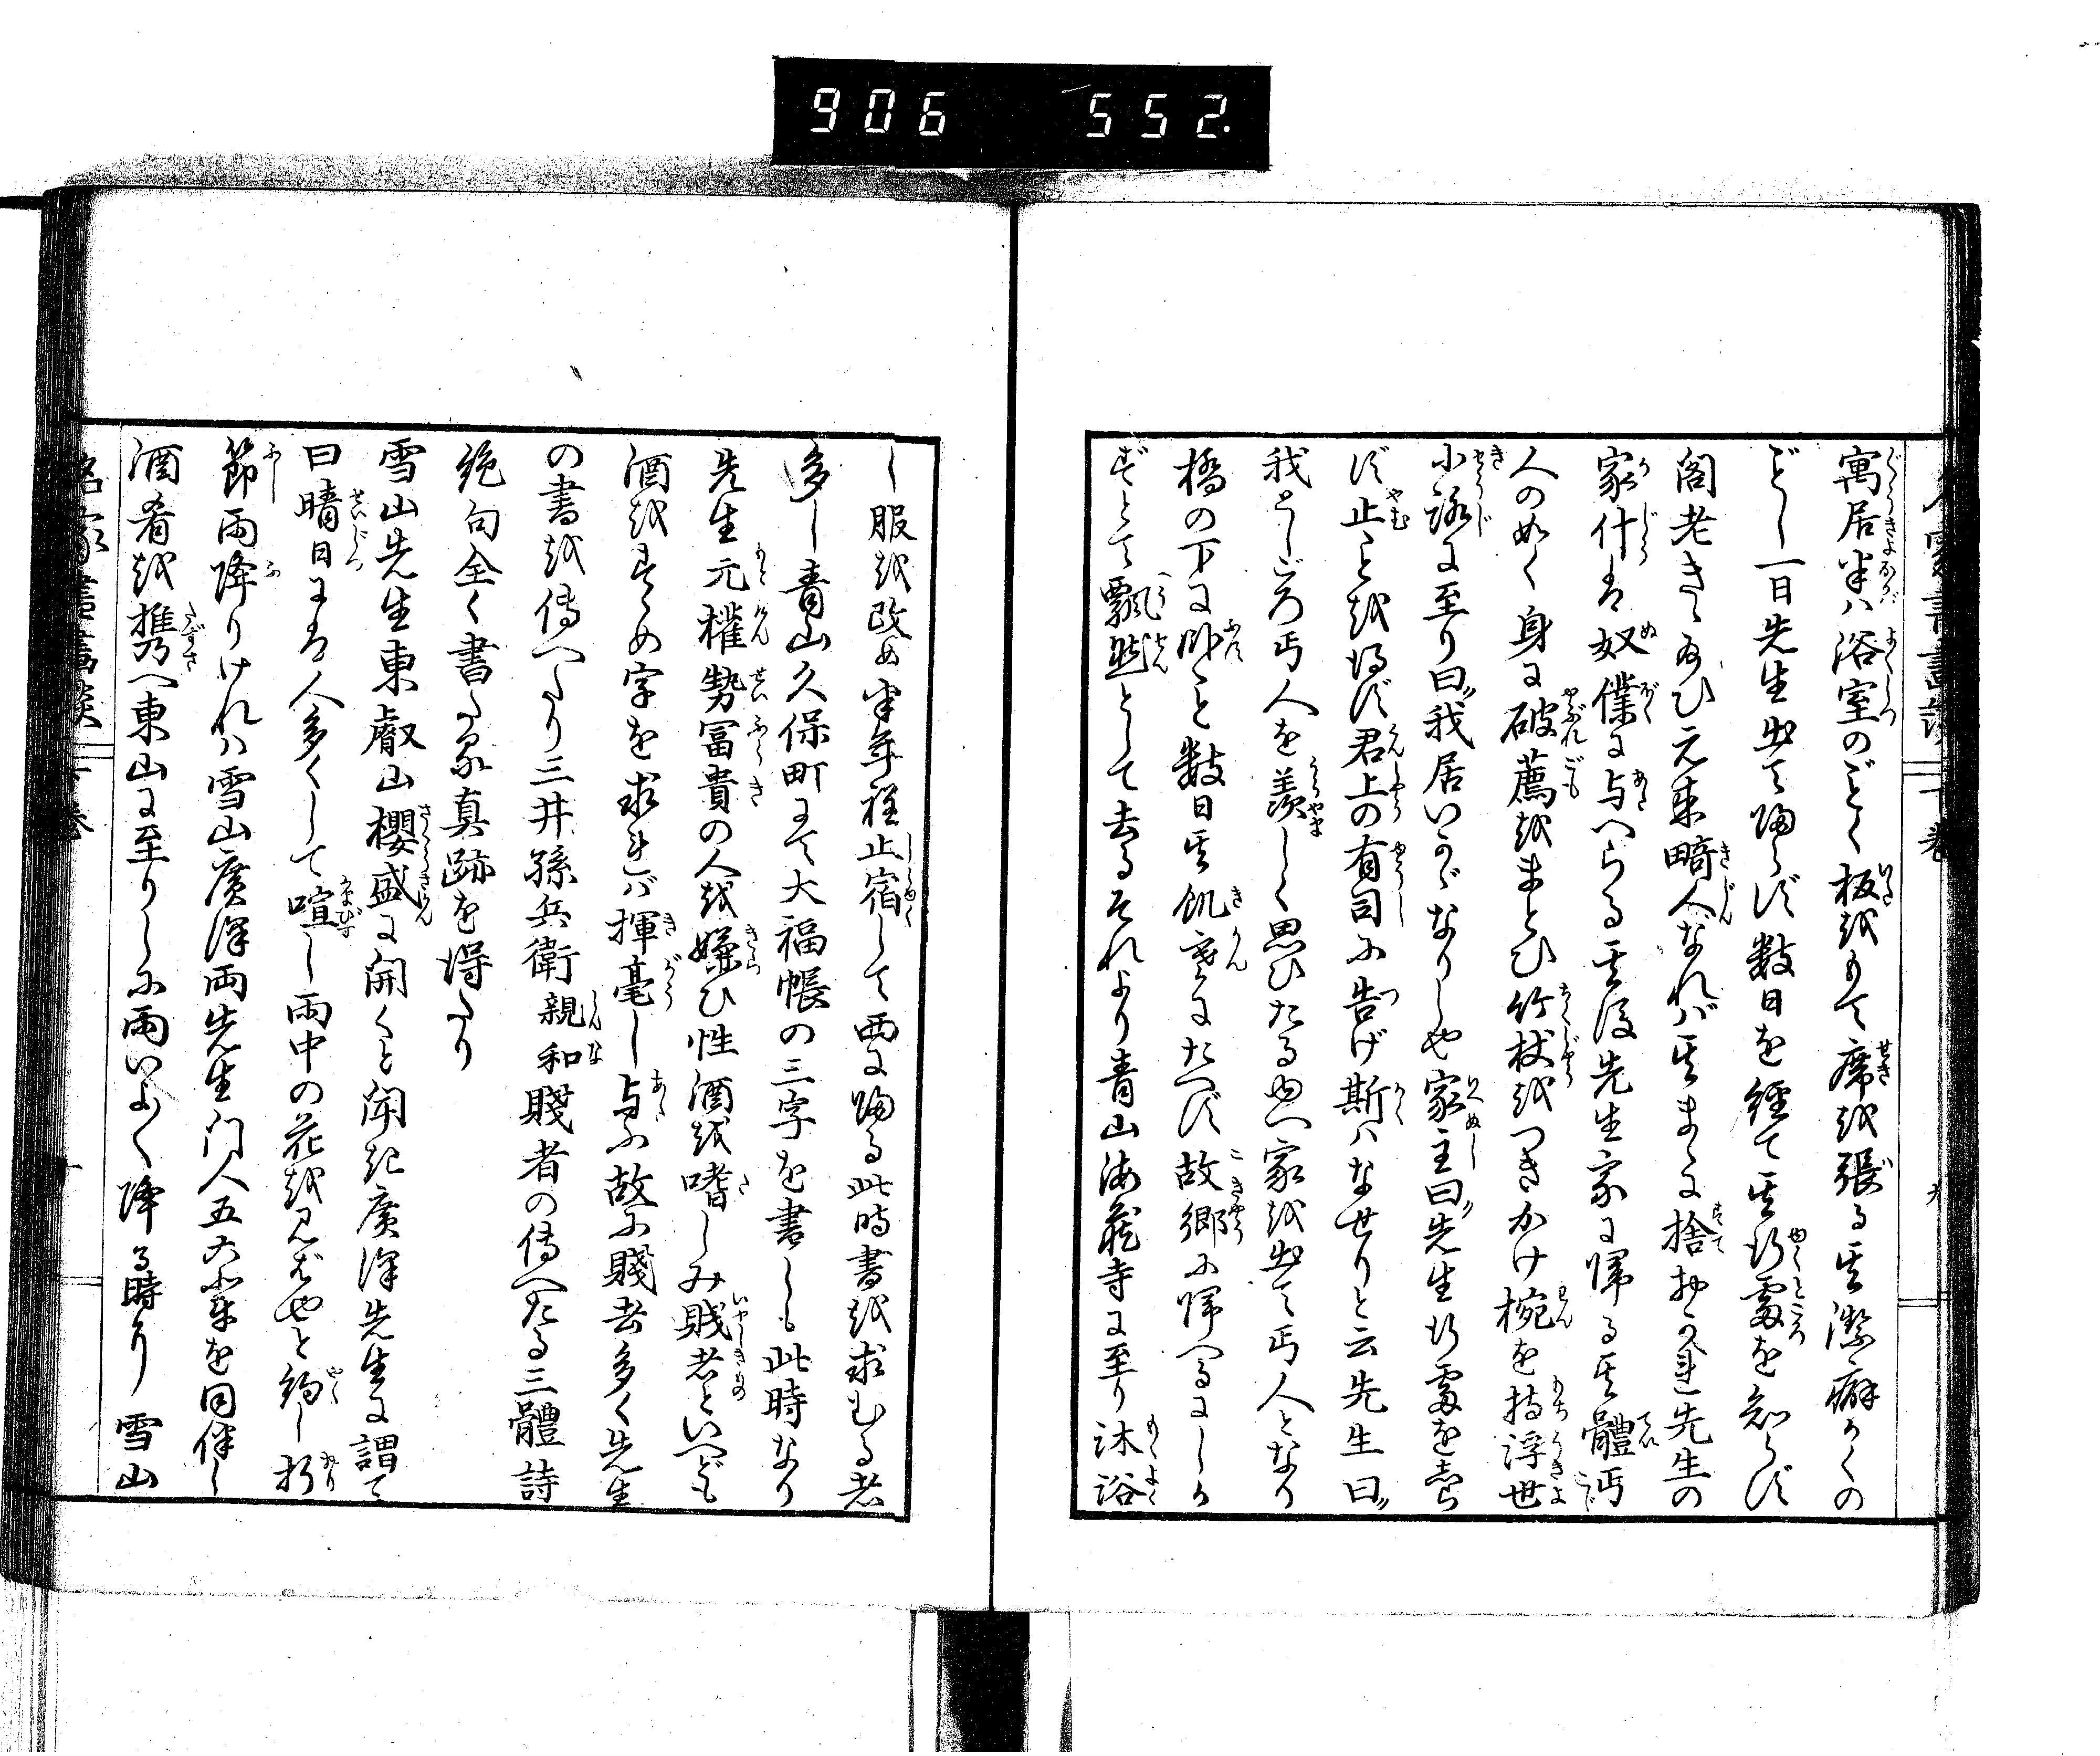 906 552.
寓居半ハ浴室のごとく板をもて席を張る其潔癖かくの
ごとし一日先生出て帰らず数日を経て其行處を知らず
閣老きゝ及ひ元来畸人なれバ其まゝに捨おかれ先生の
家什は奴僕に与へらる其後先生家に帰る其體丐
人の如く身に破薦をまとひ竹杖をつきかけ椀を持浮世
小路に至り曰我居いかゞなりしや家主曰先生行處を知ら
ず止ことを得ず君上の有司に告げ斯ハなせりと云先生曰
我としごろ丐人を羨しく思ひたるゆへ家を出て丐人となり
橋の下に臥こと数日其飢寒にたへず故郷に帰へるにしか
ずとて飄然として去るそれより青山海蔵寺に至り沐浴
し服を改め半年程止宿して西に帰る此時書を求むる者
多し青山久保町にて大福帳の三字を書しも此時なり
先生元権勢富貴の人を嫌ひ性酒を嗜しみ賎者といへども
酒をすゝめ字を求れバ揮毫し与ふ故に賤者多く先生
の書を傳へたり三井孫兵衛親和賤者の傳へたる三體詩
絶句全く書たる真跡を得たり
雪山先生東叡山櫻盛に開くと聞記廣澤先生に謂て
曰晴日には人多くして喧し雨中の花を見ばやと約し折
節雨降りけれハ雪山廣澤両先生门人五六輩を同伴し
酒肴を携へ東山に至りしに雨いよ〳〵降る時り雪山
名家書畫談